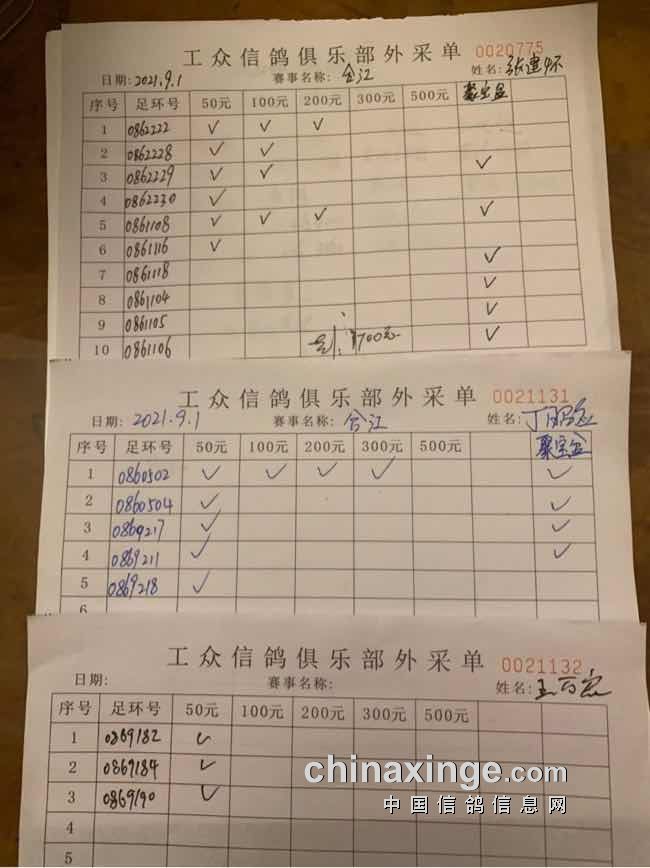 工众信鸽俱乐部外采单 0020775
日期: 2021.9.1 赛事名称: 合江 姓名: 张建怀
序号 足环号 50元 100元 200元 300元 500元 聚宝盆
1 0862222 ✓ ✓ ✓
2 0862228 ✓ ✓
3 0862229 ✓ ✓ ✓
4 0862230 ✓
5 0861108 ✓ ✓ ✓ ✓
6 0861116 ✓
7 0861118 ✓
8 0861104 ✓
9 0861105 ✓
10 0861106 700元 ✓
工众信鸽俱乐部外采单 0021131
日期: 2021.9.1 赛事名称: 合江 姓名: 丁
序号 足环号 50元 100元 200元 300元 500元 聚宝盆
1 0860502 ✓ ✓ ✓ ✓ ✓
2 0860504 ✓ ✓
3 0869217 ✓ ✓
4 0869211 ✓ ✓
5 0869218 ✓
6
工众信鸽俱乐部外采单 0021132
日期: 赛事名称: 姓名: 王
序号 足环号 50元 100元 200元 300元 500元
1 0869182 ✓
2 0869184 ✓
3 0869190 ✓
4
5
chinaxinge.com
中国信鸽信息网